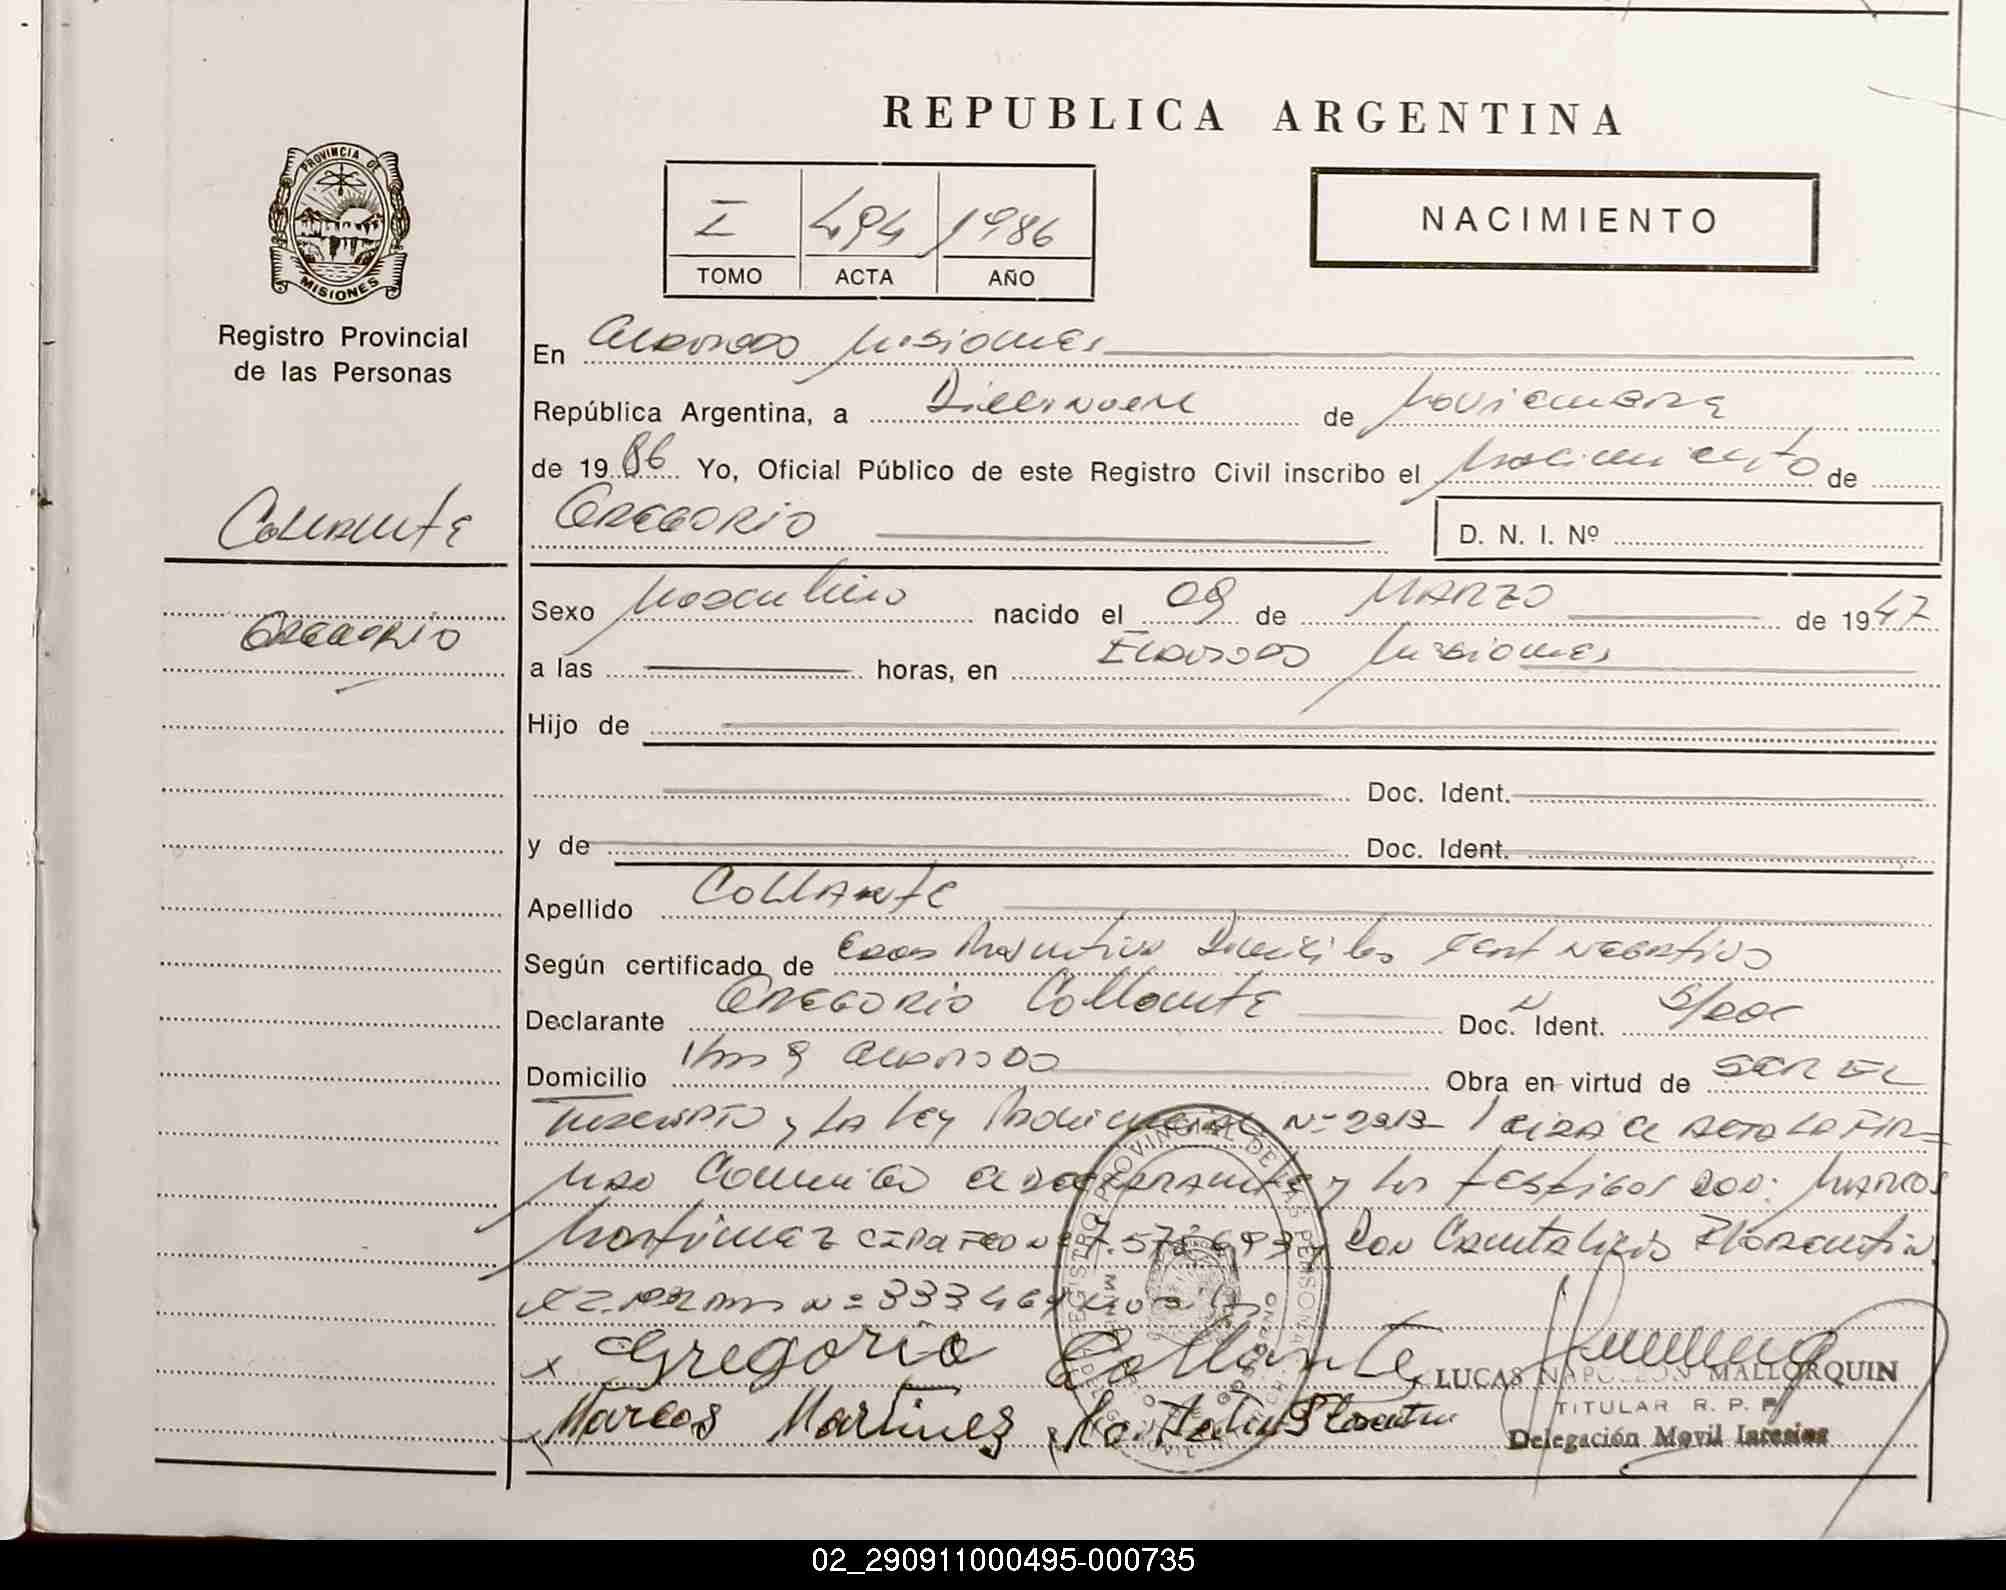 REPUBLICA ARGENTINA
PROVINCIA DE MISIONES
Registro Provincial
de las Personas
I 494 1986
TOMO ACTA AÑO
NACIMIENTO
En Eldorado Misiones
República Argentina, a Diecinueve de Noviembre
de 1986 Yo, Oficial Público de este Registro Civil inscribo el Nacimiento de
Collante
GREGORIO
D. N. I. Nº
GREGORIO
Sexo Masculino nacido el 09 de MARZO de 1947
a las horas, en Eldorado Misiones
Hijo de
Doc. Ident.
y de Doc. Ident.
Apellido Collante
Según certificado de Negativo
Declarante GREGORIO Collante Doc. Ident. S/Doc
Domicilio Km 9 Eldorado Obra en virtud de SER EL
Inscripto y LA Ley Provincial Nº Leida el Acta LA FIR=
man Conmigo el declarante y los testigos don: Marcos
Martinez Nº 7.573.693 y Don Florentin
Nº 333469
Gregorio Collante
Marcos Martinez Florentin
LUCAS NAPOLEON MALLORQUIN
TITULAR R. P. P.
Delegación Movil Interior
REGISTRO PROVINCIAL DE LAS PERSONAS
02_290911000495-000735